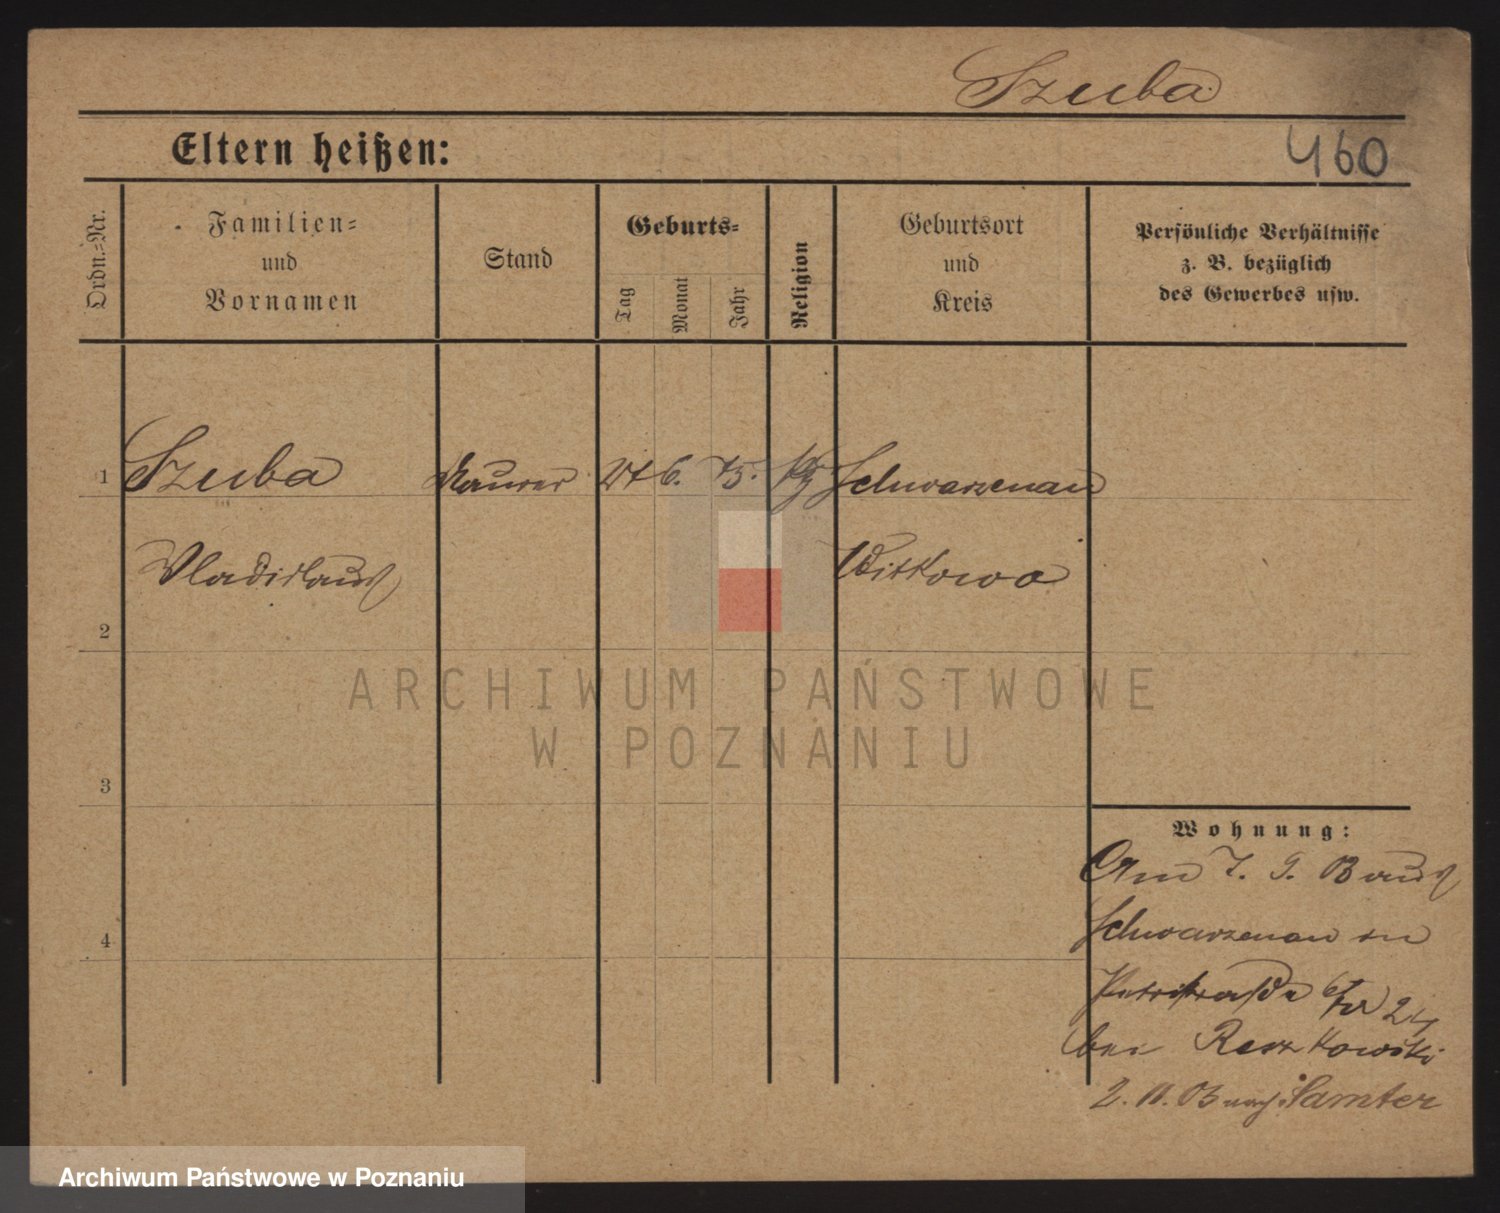 Szuba
Eltern heißen:
460
Ordn.-Nr.
Familien-
und
Vornamen
Stand
Geburts-
Tag
Monat
Jahr
Religion
Geburtsort
und
Kreis
Persönliche Verhältnisse
z. B. bezüglich
des Gewerbes usw.
1 Szuba Maurer 27 6. 75. Schwarzenau
Vladislaus Witkowo
2
ARCHIWUM PAŃSTWOWE
W POZNANIU
3
Wohnung:
Am 7. 9. 03 aus
Schwarzenau in
4
24
bei Reszkowski
2. 11. 03 nach Samter
Archiwum Państwowe w Poznaniu